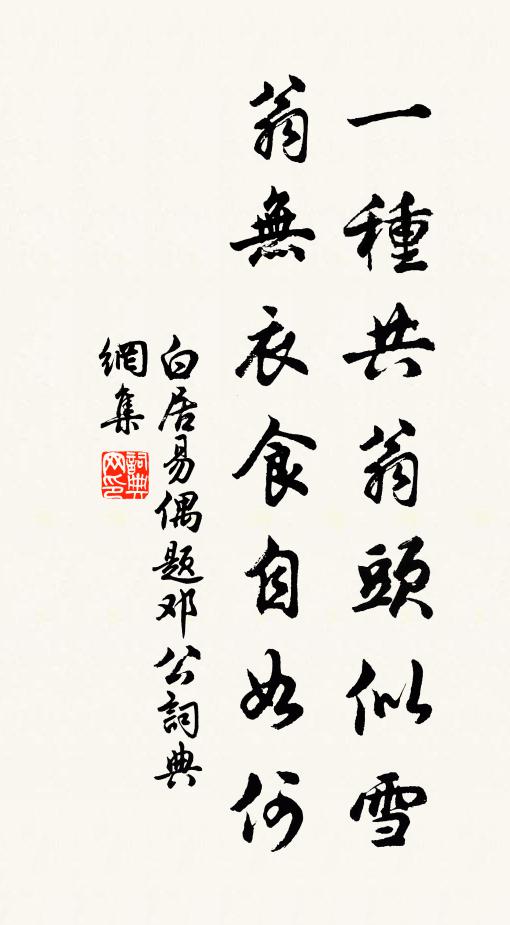 一種共翁頭似雪
翁無衣食自如何
白居易偶题邓公詞典
網集
詞典网印